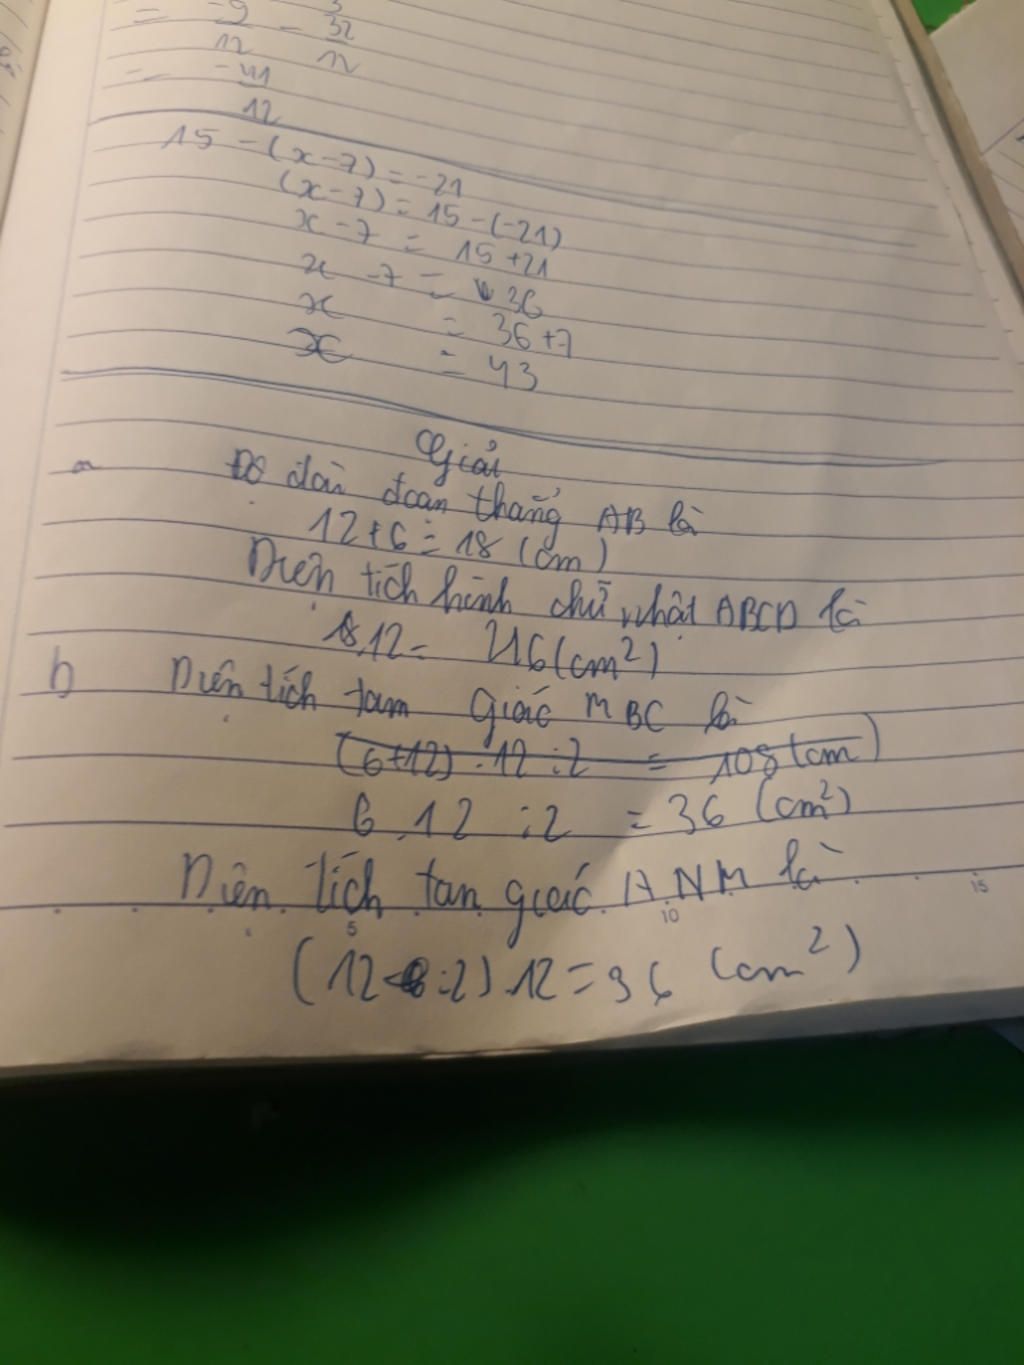 = -9/12 - 32/12
= -41/12
15 - (x - 7) = -21
(x - 7) = 15 - (-21)
x - 7 = 15 + 21
x - 7 = 36
x = 36 + 7
x = 43
Giải
a Độ dài đoạn thẳng AB là
12 + 6 = 18 (cm)
Diện tích hình chữ nhật ABCD là
18.12 = 216 (cm²)
b Diện tích tam giác MBC là
(6+12) . 12 : 2 = 108 (cm)
6 . 12 : 2 = 36 (cm²)
Diện tích tan giác ANM là
5 10 15
.12 = 36 (cm²)